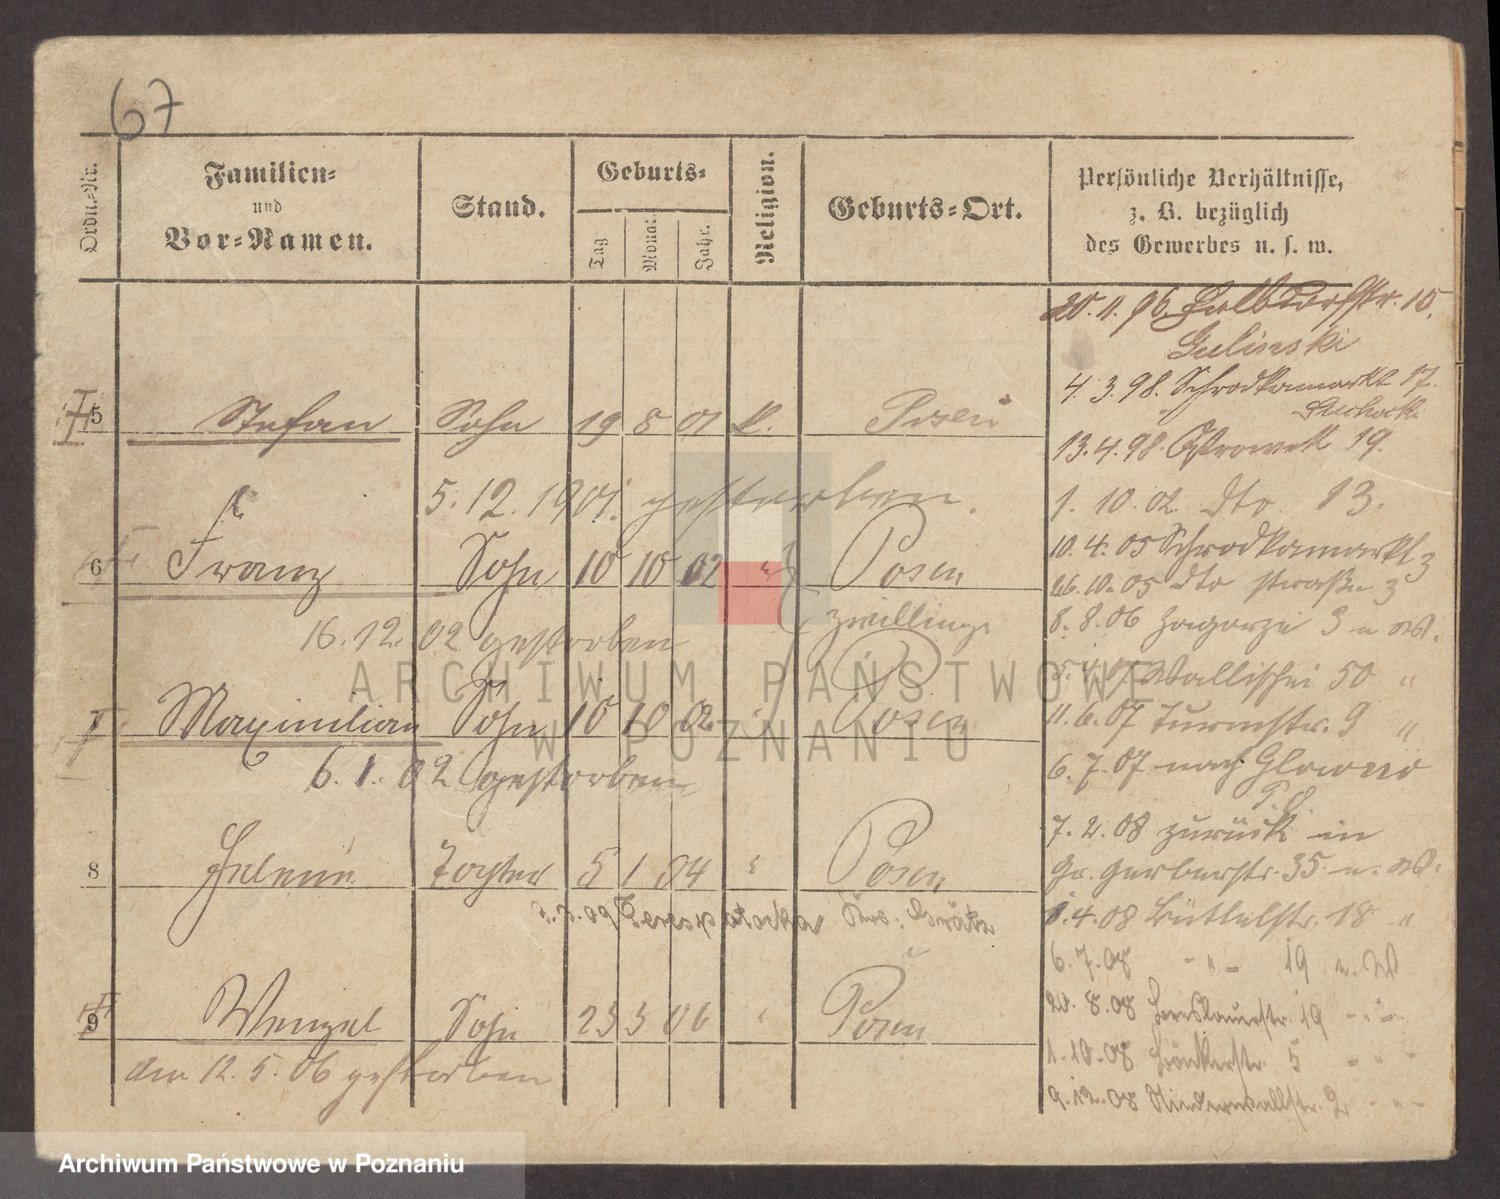 67
Ordn.-Nr.
Familien-
und
Vor-Namen.
Stand.
Geburts-
Tag
Monat
Jahr.
Religion.
Geburts-Ort.
Persönliche Verhältnisse,
z. B. bezüglich
des Gewerbes u. s. w.
20. 11. 96. Halbdorfstr. 15.
Gulinski
4. 3. 98. Schrodkamarkt 17.
5 Stefan Sohn 19 8 01 k. Posen
13. 4. 98. Ostrowek 19.
5. 12. 1901. gestorben.
1. 10. 02. dto. 13.
10. 4. 05 Schrodkamarkt 3
6 Franz Sohn 10 10 02 " Posen
26. 10. 05 dto straße 3
16. 12. 02 gestorben
Zwillinge
8. 8. 06 Zagorze 3 u W.
07 Wallischei 50 "
7 Maximilian Sohn 10 10 02 " Posen
11. 6. 07 Turmstr. 9 "
6. 1. 02 gestorben
6. 7. 07 nach Glowno
7. 2. 08 zurück in
8 Helene Tochter 5 1 04 " Posen
Gr. Gerberstr. 35. u. W.
Krs. Grätz
1. 4. 08 Büttelstr. 18 "
6. 7. 08 - " - 19 u. W
20. 8. 08 Breslauerstr. 19 - " -
9 Wenzel Sohn 23 3 06 " Posen
1. 10. 08 5 - " -
den 12. 5. 06 gestorben
9. 12. 08 Niederwallstr. 2 - " -
ARCHIWUM PAŃSTWOWE
W POZNANIU
Archiwum Państwowe w Poznaniu